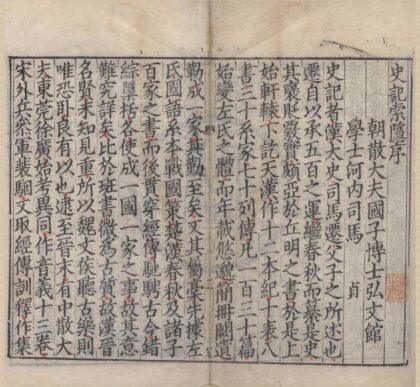 史記索隱序
朝散大夫國子博士弘文館
學士河内司馬 貞
史記者漢太史司馬遷父子之所述也
遷自以承五百之運繼春秋而纂是史
其褒貶覈實頗亞於丘明之書於是上
始軒轅下訖天漢作十二本紀十表八
書三十系家七十列傳凡一百三十篇
始變左氏之體而年載悠邈簡冊闕遺
勒成一家其勤至矣又其屬稾先據左
氏國語系本戰國策楚漢春秋及諸子
百家之書而後貫穿經傳馳騁古今錯
綜隱括各使成一國一家之事故其意
難究詳矣比於班書微爲古質故漢晉
名賢未知見重所以魏文侯聽古樂則
唯恐臥良有以也逮至晉末有中散大
夫東莞徐廣始考異同作音義十三卷
宋外兵叅軍裴駰又取經傳訓釋作集